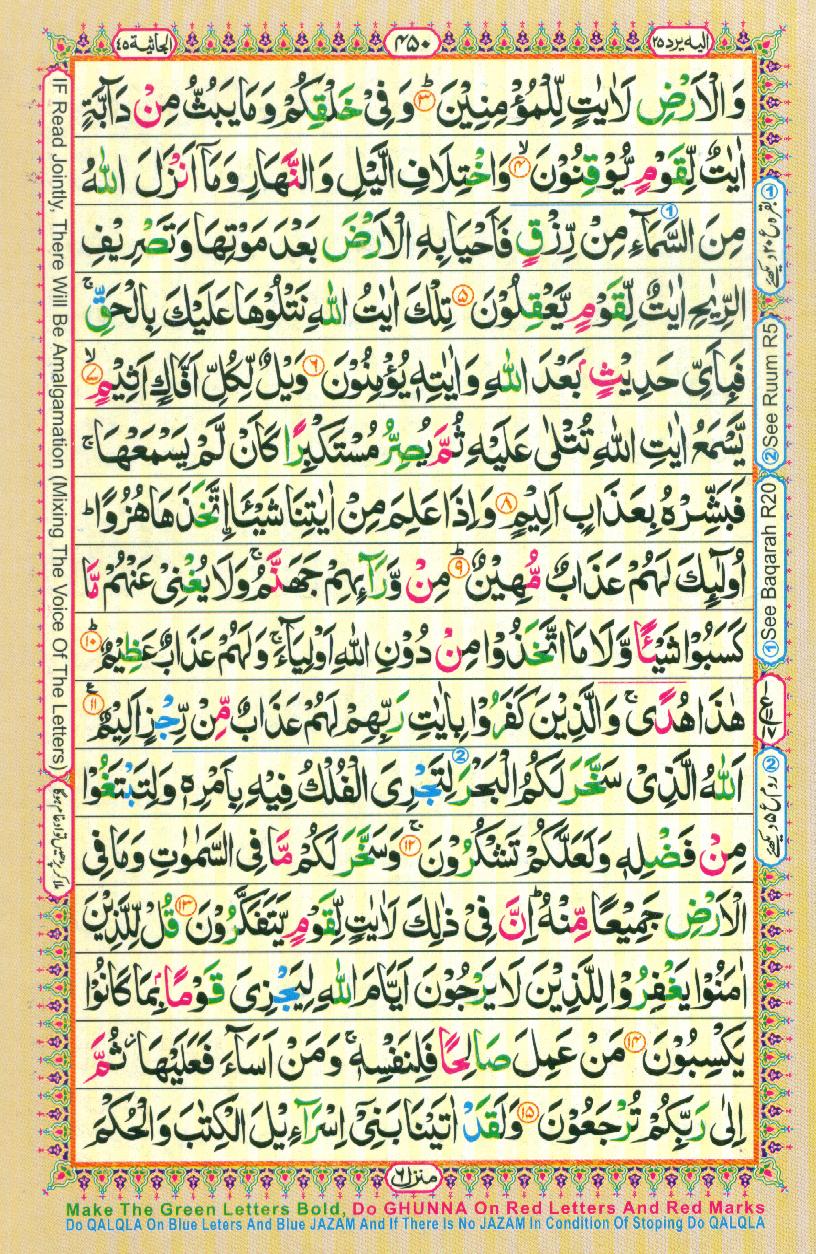 الیه یرد ٢٥
٤٥٠
الجاثیة ٤٥
وَالْاَرْضِ لَاٰیٰتٍ لِّلْمُؤْمِنِیْنَ ؕ﴿۳﴾ وَ فِیْ خَلْقِكُمْ وَ مَا یَبُثُّ مِنْ دَآبَّةٍ
اٰیٰتٌ لِّقَوْمٍ یُّوْقِنُوْنَ ۙ﴿۴﴾ وَ اخْتِلَافِ الَّیْلِ وَ النَّهَارِ وَ مَاۤ اَنْزَلَ اللّٰهُ
مِنَ السَّمَآءِ مِنْ رِّزْقٍ فَاَحْیَا بِهِ الْاَرْضَ بَعْدَ مَوْتِهَا وَ تَصْرِیْفِ
الرِّیٰحِ اٰیٰتٌ لِّقَوْمٍ یَّعْقِلُوْنَ ﴿۵﴾ تِلْكَ اٰیٰتُ اللّٰهِ نَتْلُوْهَا عَلَیْكَ بِالْحَقِّ ۚ
فَبِاَیِّ حَدِیْثٍۭ بَعْدَ اللّٰهِ وَ اٰیٰتِهٖ یُؤْمِنُوْنَ ﴿۶﴾ وَیْلٌ لِّكُلِّ اَفَّاكٍ اَثِیْمٍ ۙ﴿۷﴾
یَّسْمَعُ اٰیٰتِ اللّٰهِ تُتْلٰى عَلَیْهِ ثُمَّ یُصِرُّ مُسْتَكْبِرًا كَاَنْ لَّمْ یَسْمَعْهَا ۚ
فَبَشِّرْهُ بِعَذَابٍ اَلِیْمٍ ﴿۸﴾ وَ اِذَا عَلِمَ مِنْ اٰیٰتِنَا شَیْـَٔا اِ۟تَّخَذَهَا هُزُوًا ؕ
اُولٰٓىِٕكَ لَهُمْ عَذَابٌ مُّهِیْنٌ ؕ﴿۹﴾ مِنْ وَّرَآىِٕهِمْ جَهَنَّمُ ۚ وَ لَا یُغْنِیْ عَنْهُمْ مَّا
كَسَبُوْا شَیْـًٔا وَّ لَا مَا اتَّخَذُوْا مِنْ دُوْنِ اللّٰهِ اَوْلِیَآءَ ۚ وَ لَهُمْ عَذَابٌ عَظِیْمٌ ؕ﴿۱۰﴾
هٰذَا هُدًى ۚ وَ الَّذِیْنَ كَفَرُوْا بِاٰیٰتِ رَبِّهِمْ لَهُمْ عَذَابٌ مِّنْ رِّجْزٍ اَلِیْمٌ ﴿۱۱﴾
اَللّٰهُ الَّذِیْ سَخَّرَ لَكُمُ الْبَحْرَ لِتَجْرِیَ الْفُلْكُ فِیْهِ بِاَمْرِهٖ وَ لِتَبْتَغُوْا
مِنْ فَضْلِهٖ وَ لَعَلَّكُمْ تَشْكُرُوْنَ ۚ﴿۱۲﴾ وَ سَخَّرَ لَكُمْ مَّا فِی السَّمٰوٰتِ وَ مَا فِی
الْاَرْضِ جَمِیْعًا مِّنْهُ ؕ اِنَّ فِیْ ذٰلِكَ لَاٰیٰتٍ لِّقَوْمٍ یَّتَفَكَّرُوْنَ ﴿۱۳﴾ قُلْ لِّلَّذِیْنَ
اٰمَنُوْا یَغْفِرُوْا لِلَّذِیْنَ لَا یَرْجُوْنَ اَیَّامَ اللّٰهِ لِیَجْزِیَ قَوْمًۢا بِمَا كَانُوْا
یَكْسِبُوْنَ ﴿۱۴﴾ مَنْ عَمِلَ صَالِحًا فَلِنَفْسِهٖ ۚ وَ مَنْ اَسَآءَ فَعَلَیْهَا ؗ ثُمَّ
اِلٰى رَبِّكُمْ تُرْجَعُوْنَ ﴿۱۵﴾ وَ لَقَدْ اٰتَیْنَا بَنِیْۤ اِسْرَآءِیْلَ الْكِتٰبَ وَ الْحُكْمَ
منزل ٦
① بقره ع ٢٠ دیکھئے
②See Ruum R5
①See Baqarah R20
② روم ع ٥ دیکھئے
IF Read Jointly, There Will Be Amalgamation (Mixing The Voice Of The Letters)
Make The Green Letters Bold, Do GHUNNA On Red Letters And Red Marks
Do QALQLA On Blue Leters And Blue JAZAM And If There Is No JAZAM In Condition Of Stoping Do QALQLA